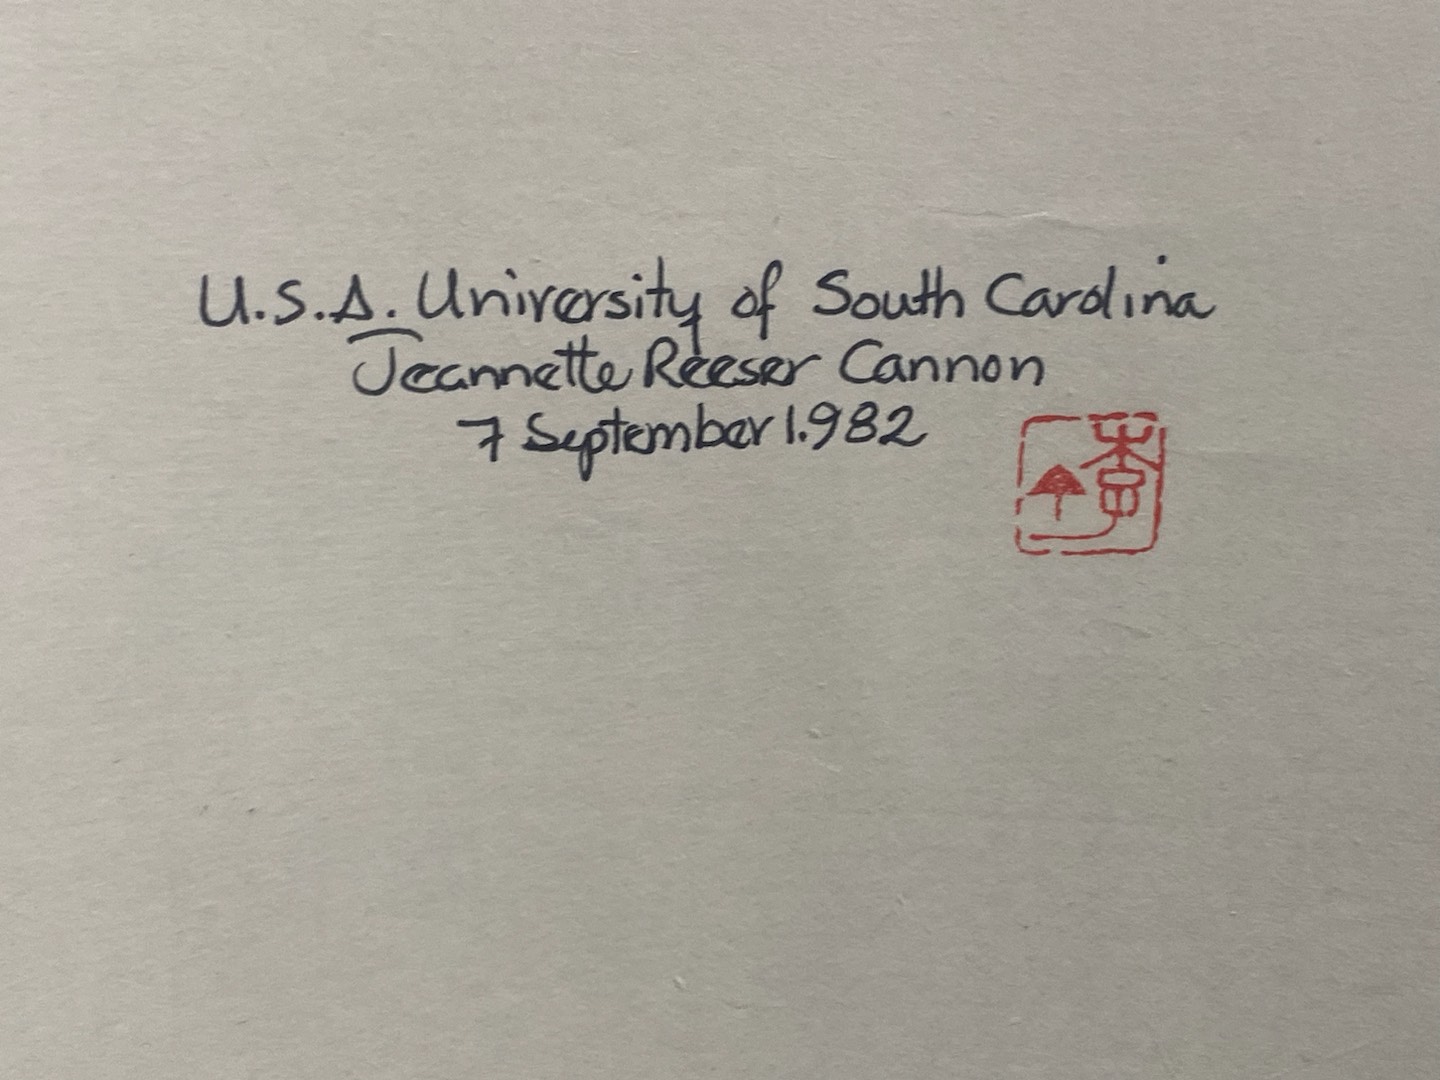 U.S.A. University of South Carolina
Jeannette Reeser Cannon
7 September 1.982